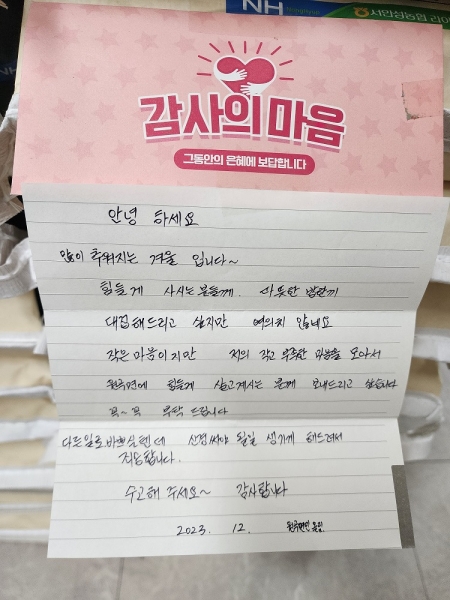 NH
서안성농협 라이
NH
감사의 마음
그동안의 은혜에 보답합니다
안녕 하세요
많이 추워지는 겨울 입니다~
힘들게 사시는분들께. 따뜻한 밥한끼
대접해드리고 싶지만 여의치 않네요
작은마음이지만 저의 작고 부족한 마음을 모아서
원곡면에 힘들게 살고계시는 분께 보내드리고 싶습니다
꼭~꼭 부탁드립니다
다른일로바쁘실텐데 신경써야 될일 생기게 해드려서
죄송합니다.
수고해 주세요~ 감사합니다
2023. 12. 원곡면민 올림